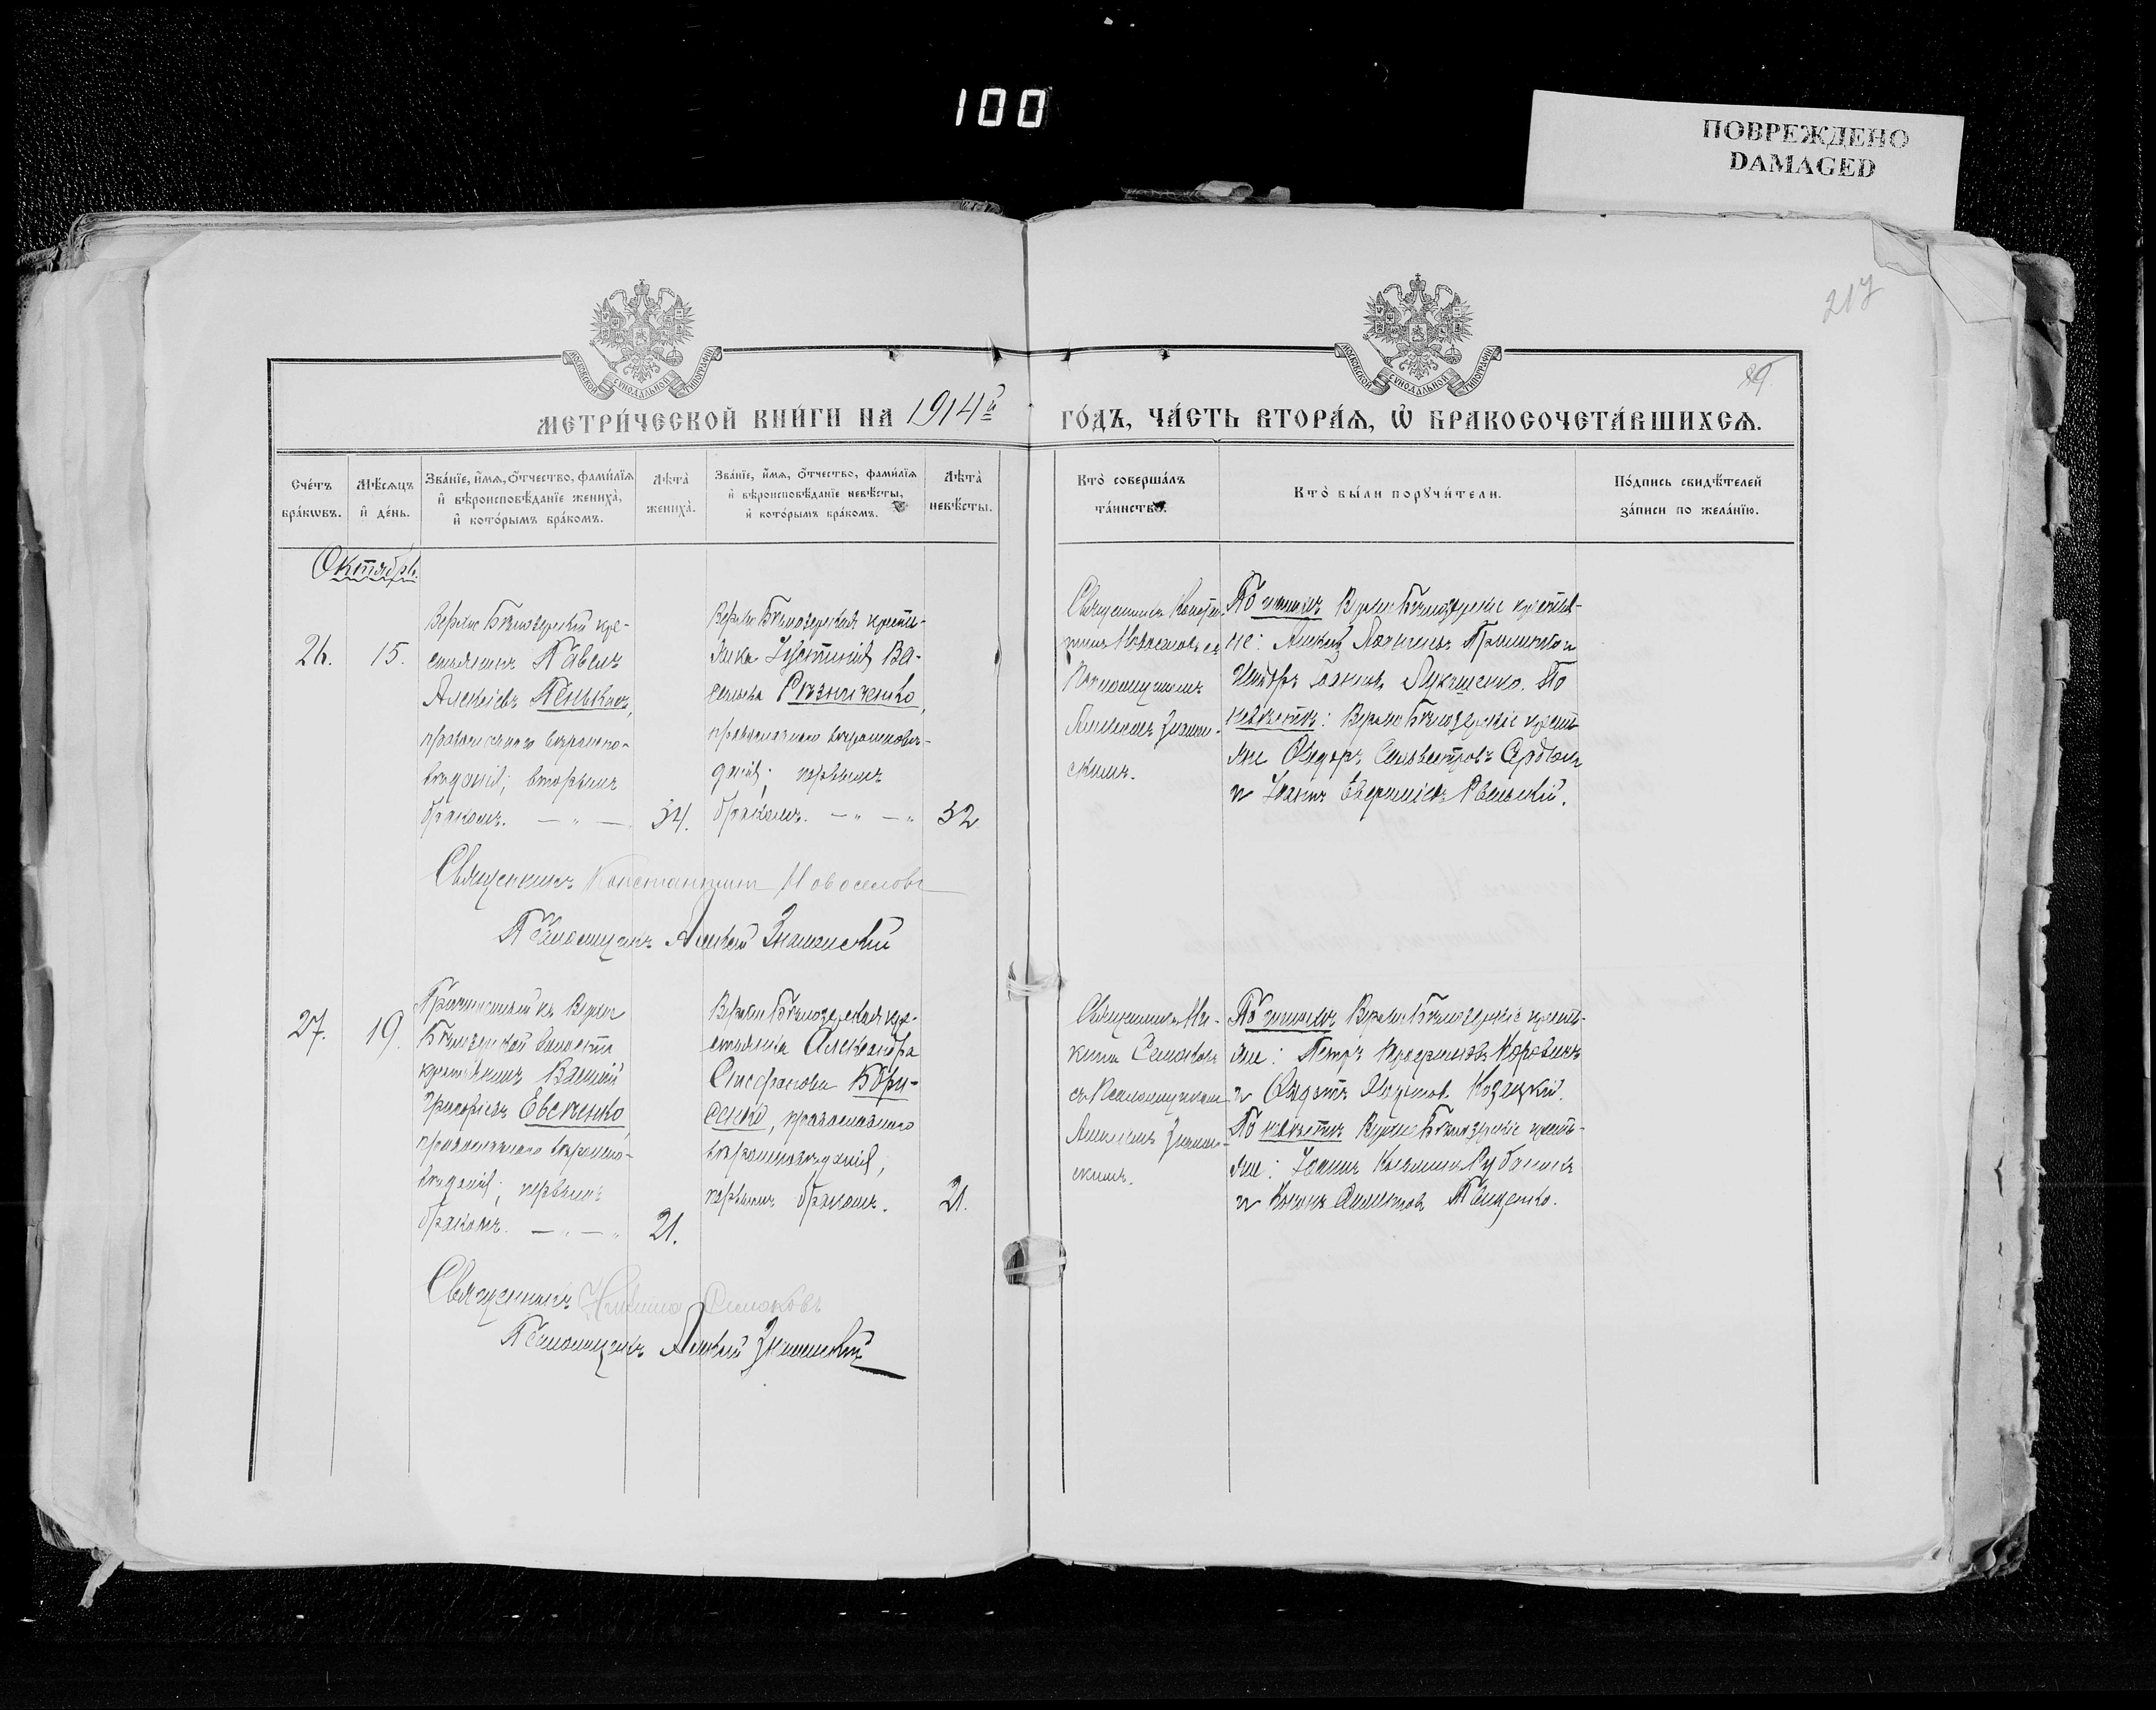 100
ПОВРЕЖДЕНО
DAMAGED
217
89.
МОСКОВСКОЙ СѴНОДАЛЬНОЙ ТИПОГРАФІИ
МОСКОВСКОЙ СѴНОДАЛЬНОЙ ТИПОГРАФІИ
МЕТРИ́ЧЕСКОЙ КНИ́ГИ НА 1914й
ГО́ДЪ, ЧА́СТЬ ВТОРА́Ѧ, Ѡ҆ БРАКОСОЧЕТА́ВШИХСѦ.
Сче́тъ
бра́кѡвъ.
Мѣ́сѧцъ
и҆ де́нь.
Зва́нїе, и҆́мѧ, о҆́тчество, фами́лїѧ
и҆ вѣроисповѣ́данїе жениха̀,
и҆ кото́рымъ бра́комъ.
Лѣ́та̀
жениха̀.
Зва́нїе, и҆́мѧ, о҆́тчество, фами́лїѧ
и҆ вѣроисповѣ́данїе невѣ́сты,
и҆ кото́рымъ бра́комъ.
Лѣ́та̀
невѣ́сты.
Кто̀ соверша́лъ
та́инство.
Кто̀ бы́ли порꙋчи́тели.
По́дпись свидѣ́телей
за́писи по жела́нїю.
Октябрь.
26.
15.
Верхне Бѣлозерскій кре-
стьянинъ Павелъ
Алексіевъ
православнаго вѣроиспо-
вѣданія; вторымъ
бракомъ. — „ —
34.
Верхне Бѣлозерская кресть-
янка Іустинія Ва-
сильева Рѣзниченко,
православнаго вѣроисповѣ-
данія; первымъ
бракомъ. — „ — „
32
Священникъ Констан-
тинъ Новоселовъ съ
Псаломщикомъ
Алексіемъ Знамен-
скимъ.
По женихѣ Верхне Бѣлозерскіе крестья-
не:
Лукашенко. По
невѣстѣ: Верхне Бѣлозерскіе кресть-
яне Ѳедоръ Сильвестровъ Сердюкъ
и Іоаннъ Евфиміевъ
Священникъ Константинъ Новоселовъ
Псаломщикъ Алексій Знаменскій
27.
19.
Причисленный къ Верхне
Бѣлозерской волости
крестьянинъ Василій
Григоріевъ Евсѣенко,
православнаго вѣроиспо-
вѣданія; первымъ
бракомъ. — „ — „
21.
Верхне Бѣлозерская кре-
стьянка Александра
Стефанова Бори-
сенко, православнаго
вѣроисповѣданія,
первымъ бракомъ.
21.
Священникъ Ни-
кита Симаковъ
съ Псаломщикомъ
Алексіемъ Знамен-
скимъ.
По женихѣ Верхне Бѣлозерскіе кресть-
яне: Петръ
и Козацкій.
По невѣстѣ Верхне Бѣлозерскіе кресть-
яне: Іоаннъ Рубанъ
и
Священникъ Никита Симаковъ
Псаломщикъ Алексій Знаменскій